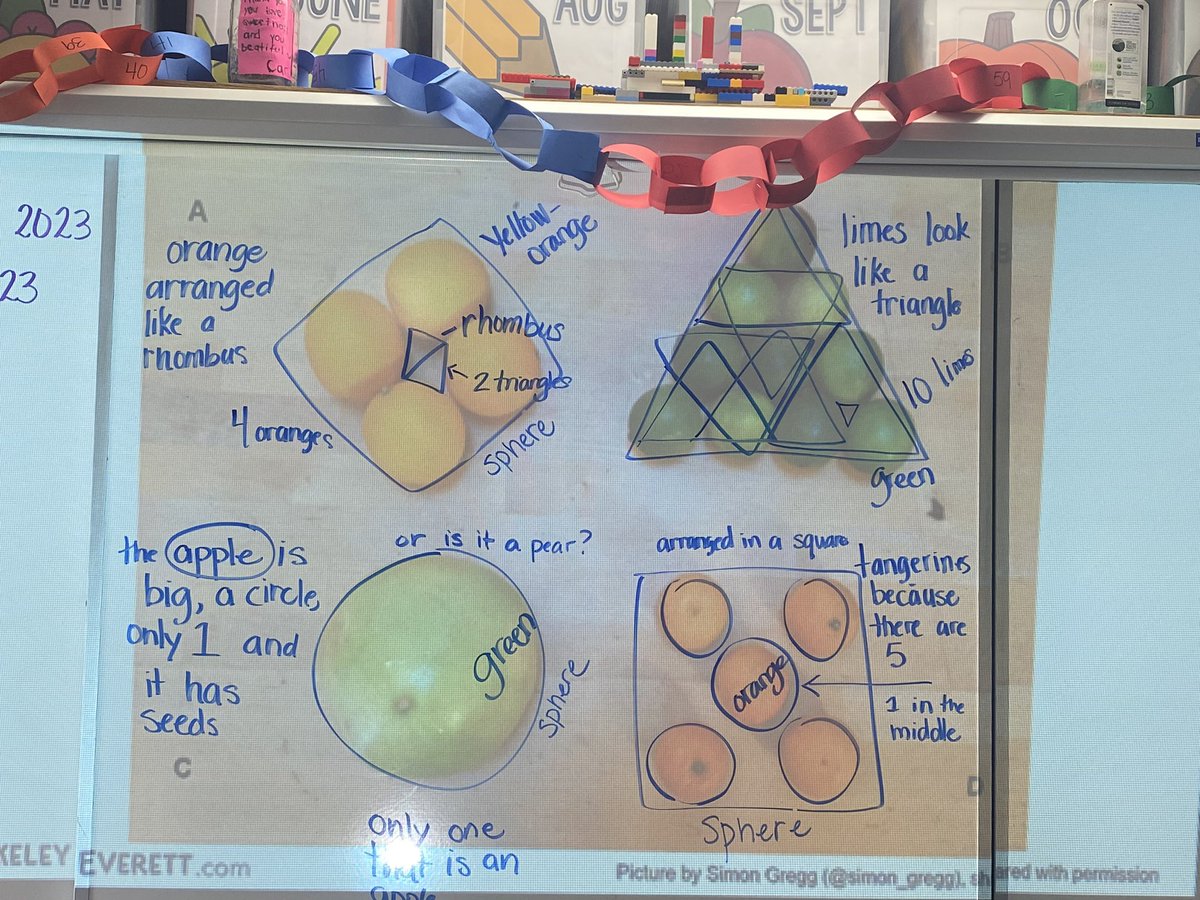 JUNE
AUG
SEPT
39
40
41
59
2023
23
A
orange
arranged
like a
rhombus
Yellow-
orange
rhombus
2 triangles
4 oranges
sphere
limes look
like a
triangle
10 limes
green
the apple is
big, a circle,
only 1 and
it has
seeds
or is it a pear?
green
sphere
C
only one
that is an
arranged in a square
tangerines
because
there are
5
orange
1 in the
middle
D
Sphere
KELEY EVERETT.com
Picture by Simon Gregg (@simon_gregg), shared with permission